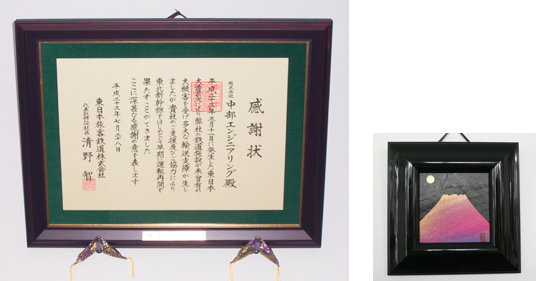 感謝状
株式会社
中部エンジニアリング殿
平成二十三年三月十一日に発生した東日本
大震災により弊社の鉄道施設が未曽有の
大被害を受け多大な輸送支障が生じ
ましたが貴社のご支援及びご協力により
東北新幹線をはじめとする早期の運転再開を
果たすことができました
ここに深甚なる感謝の意を表します
平成二十三年七月二十八日
東日本旅客鉄道株式会社
代表取締役社長 清野 智